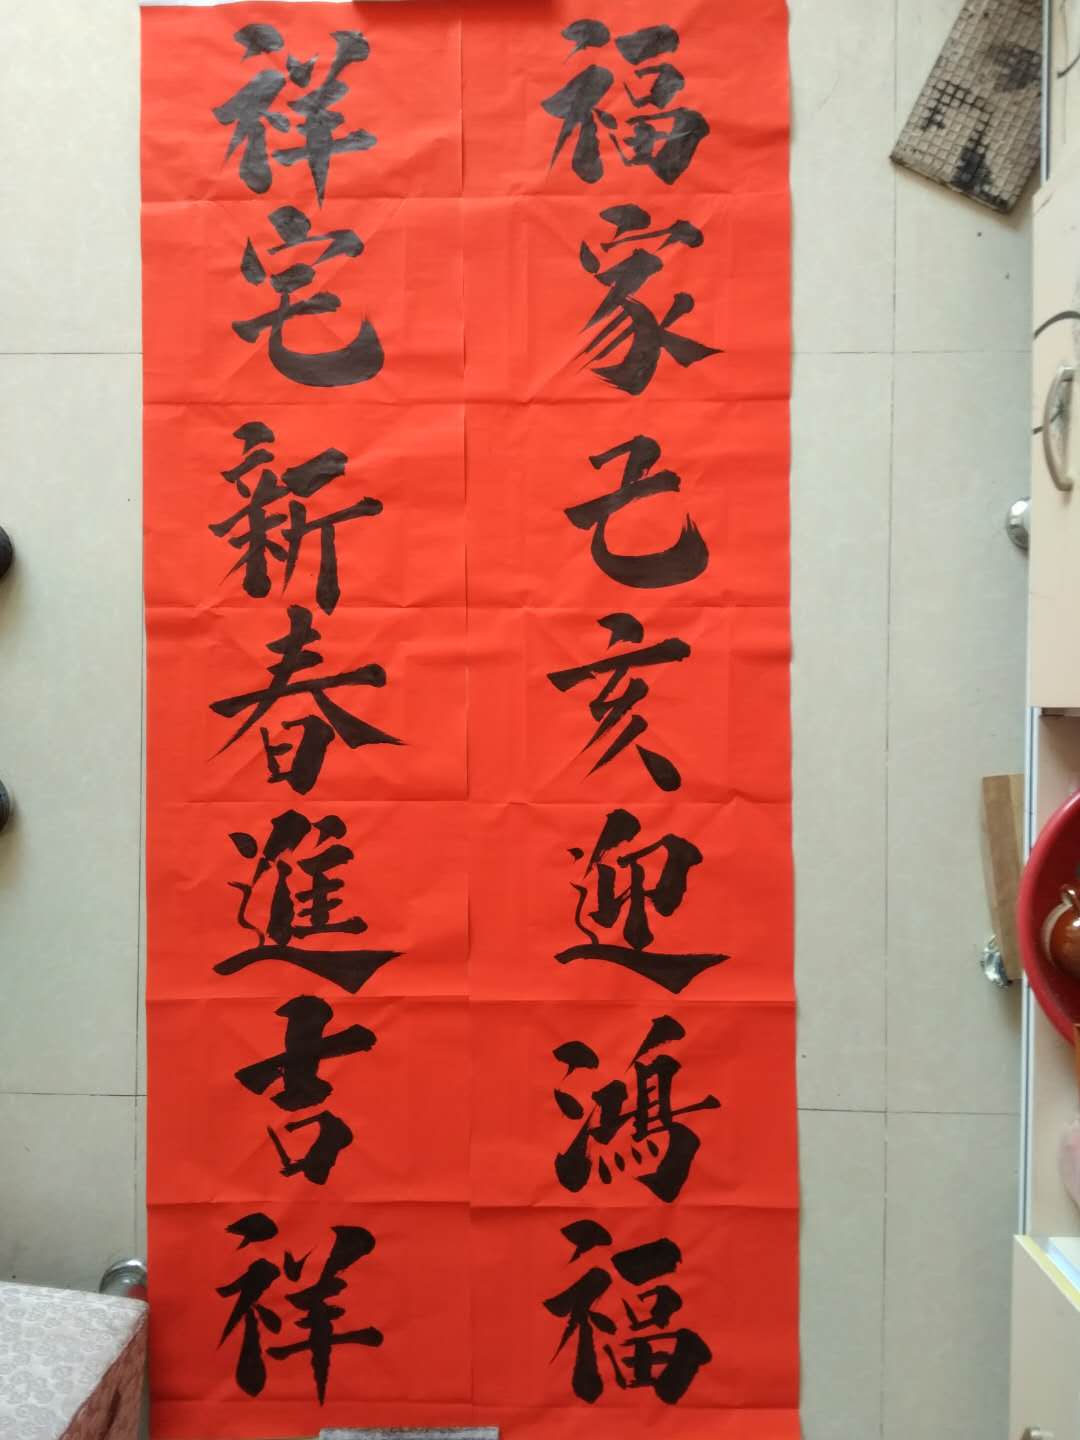 福家己亥迎鴻福
祥宅新春進吉祥